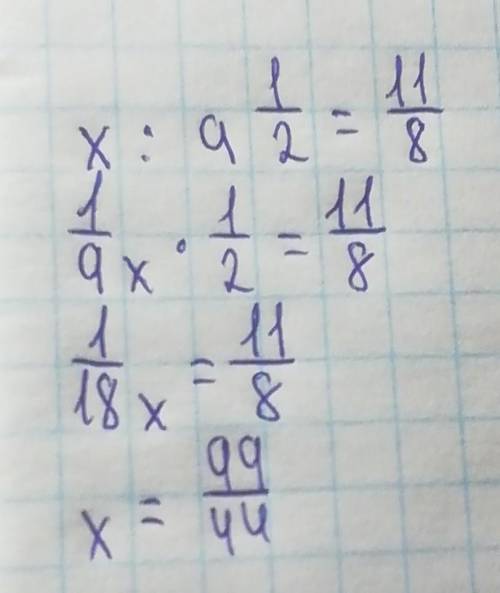 x : 9 1/2 = 11/8
1/9 x · 1/2 = 11/8
1/18 x = 11/8
x = 99/44